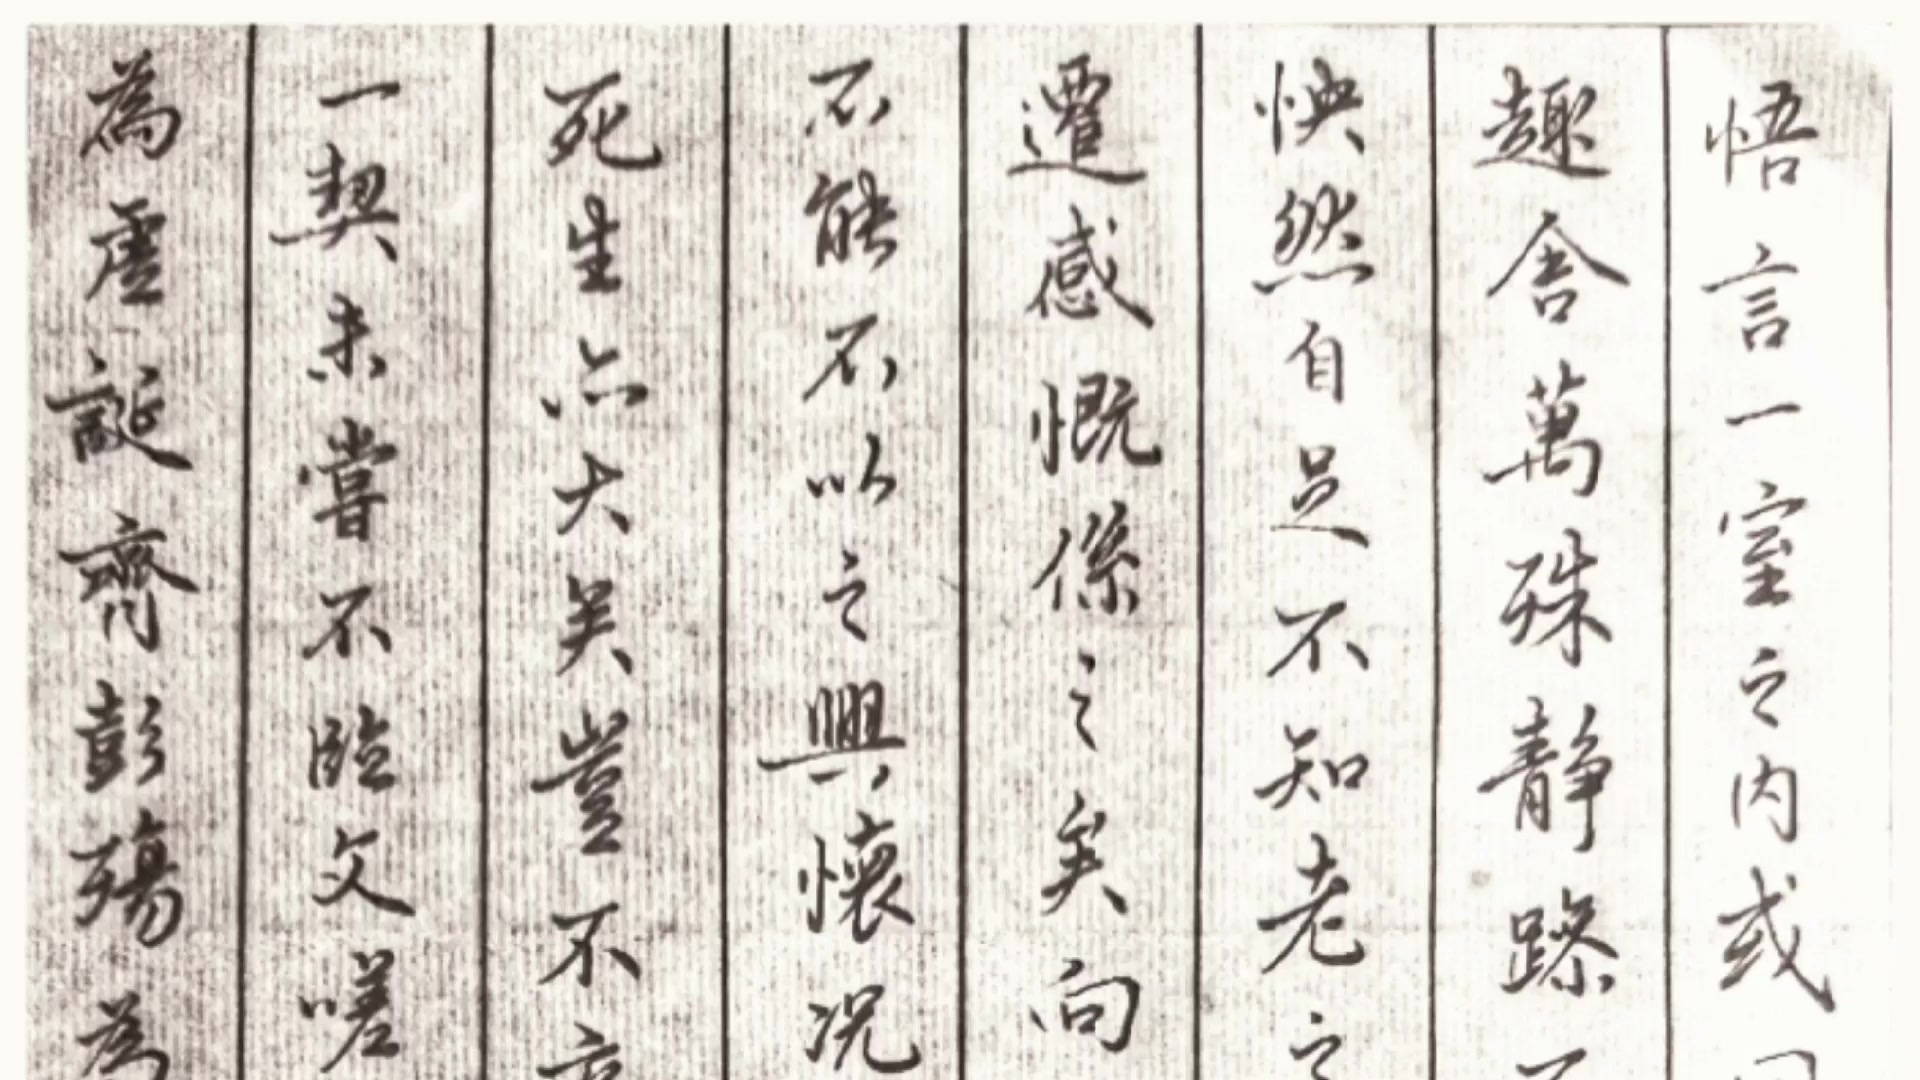 悟言一室之内或
趣舍萬殊静躁不
怏然自足不知老之
遷感慨係之矣向
不能不以之興懷况
死生亦大矣豈不
一契未嘗不臨文嗟
為虚誕齊彭殤為